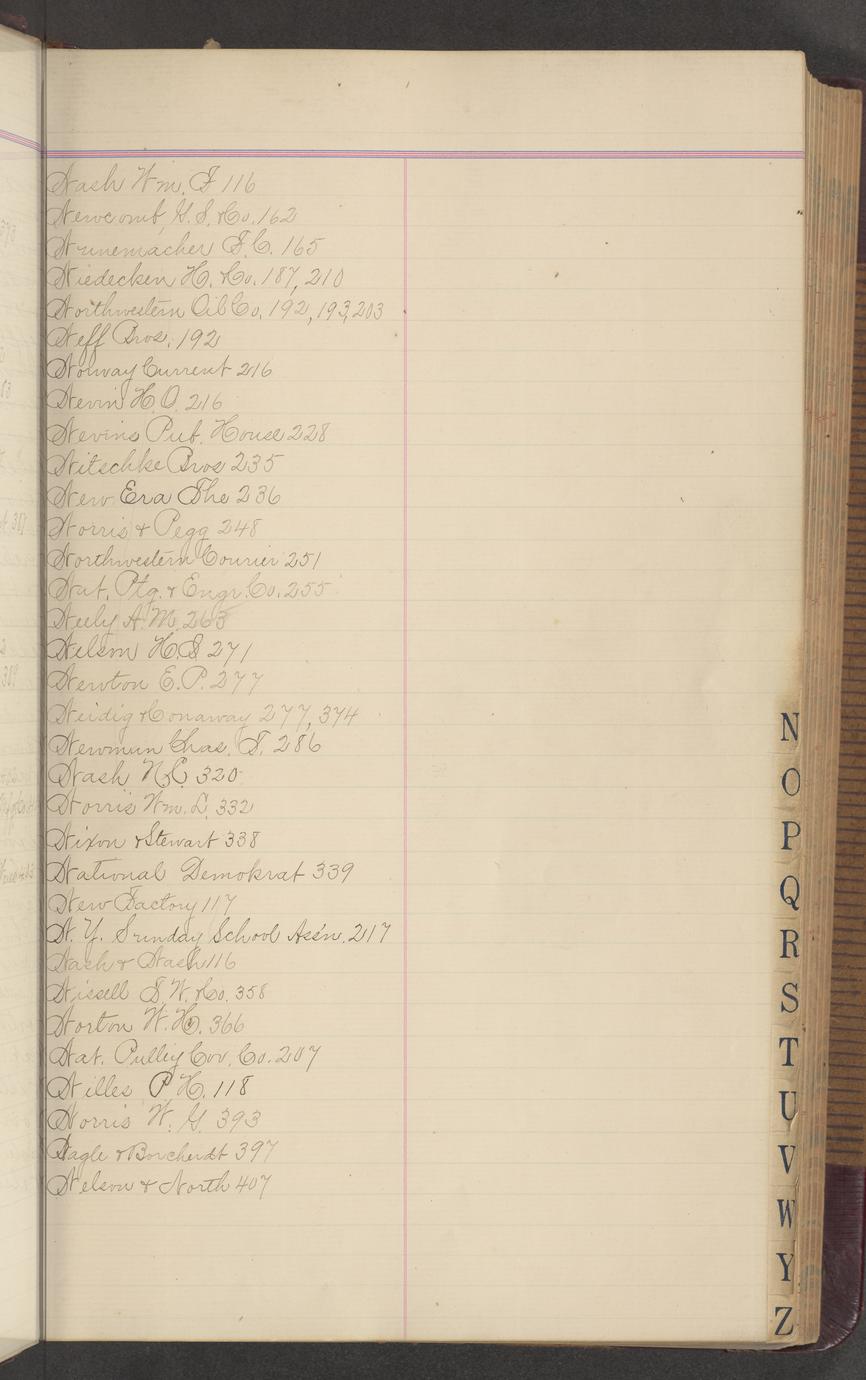 Nash Wm. F 116
Newcomb, G. S. & Co. 162
Nunemacher F. C. 165
Niedecken H. & Co. 187, 210
Northwestern Oil Co. 192, 193, 203
Neff Bros. 192
Norway Current 216
Nevin H. O. 216
Nevins Pub. House 228
Nitschke Bros 235
New Era The 236
Norris & Pegg 248
Northwestern Courier 251
Nat. Ptg. & Engr. Co. 255
Neely A. M. 263
Nelson H. S 271
Newton E. P. 277
Neidig & Conaway 277, 374
Newmun Chas. T. 286
Nash N. C. 320
Norris Wm. L. 332
Nixon & Stewart 338
National Demokrat 339
New Factory 117
N. Y. Sunday School Ass'n. 217
Nash & Nash 116
Nissell S. W. & Co. 358
Norton W. H. 366
Nat. Pulley Cov. Co. 207
Nilles P H. 118
Norris W. G. 393
Nagle & Borcherdt 397
Nelson & North 407
N
O
P
Q
R
S
T
U
V
W
Y
Z